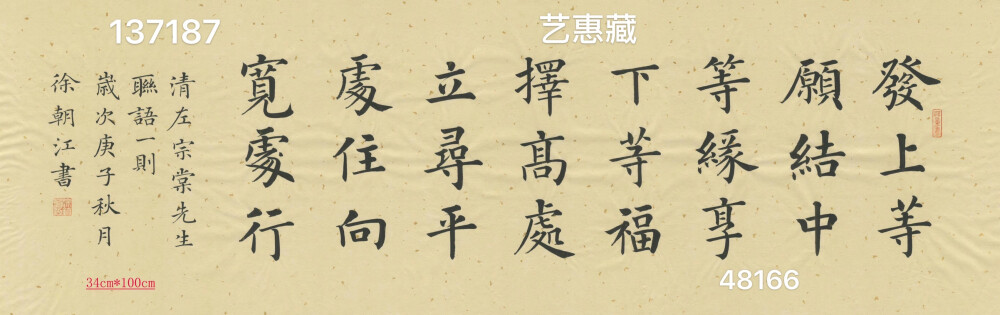 137187
艺惠藏
發上等
願結中
等緣享
下等福
擇髙處
立尋平
處住向
寬處行
清左宗棠先生
聮語一則
歲次庚子秋月
徐朝江書
34cm*100cm
48166